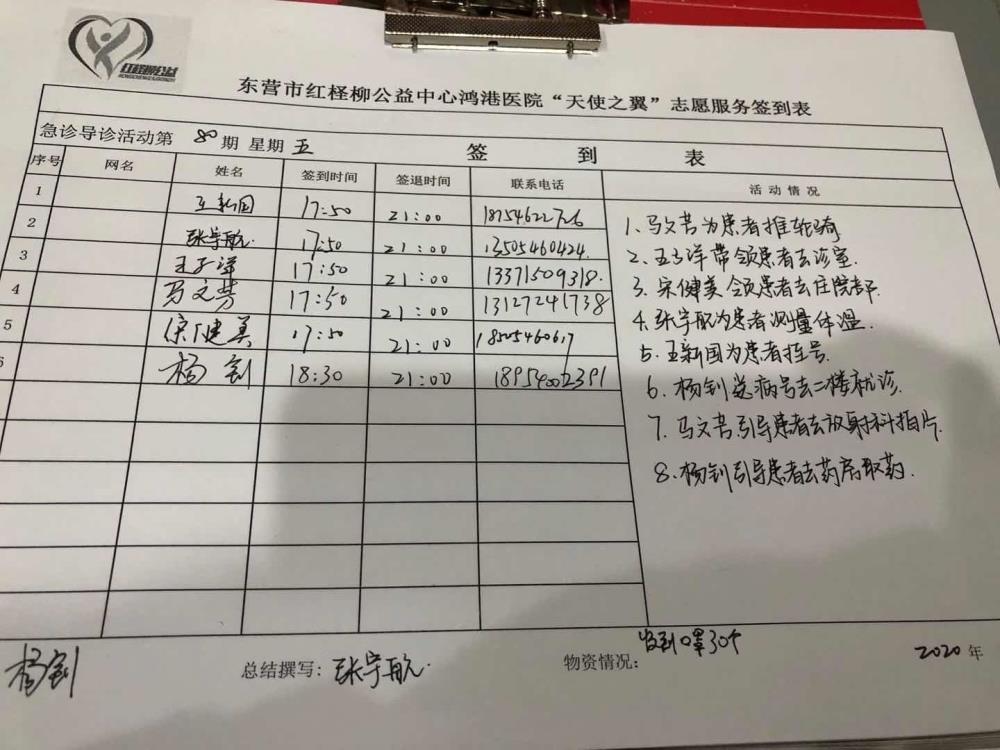 红柽柳公益
东营市红柽柳公益中心鸿港医院“天使之翼”志愿服务签到表
急诊导诊活动第 80 期 星期 五 签到表
序号 网名 姓名 签到时间 签退时间 联系电话 活动情况
1 王新国 17:50 21:00
2 张宇航 17:50 21:00 13505460424
3 王子洋 17:50 21:00 13371509318
4 马文芳 17:50 21:00 13127241738
5 宋健美 17:50 21:00 18505460617
6 杨钊 18:30 21:00 18954002391
1、马文芳为患者推轮骑
2、王子洋带领患者去诊室.
3、宋健美领患者去住院部.
4、张宇航为患者测量体温.
5、王新国为患者挂号.
6、杨钊送病号去二楼就诊.
7、马文芳引导患者去放射科拍片.
8、杨钊引导患者去药房取药.
杨钊
总结撰写：张宇航
物资情况：收到口罩30个
2020 年